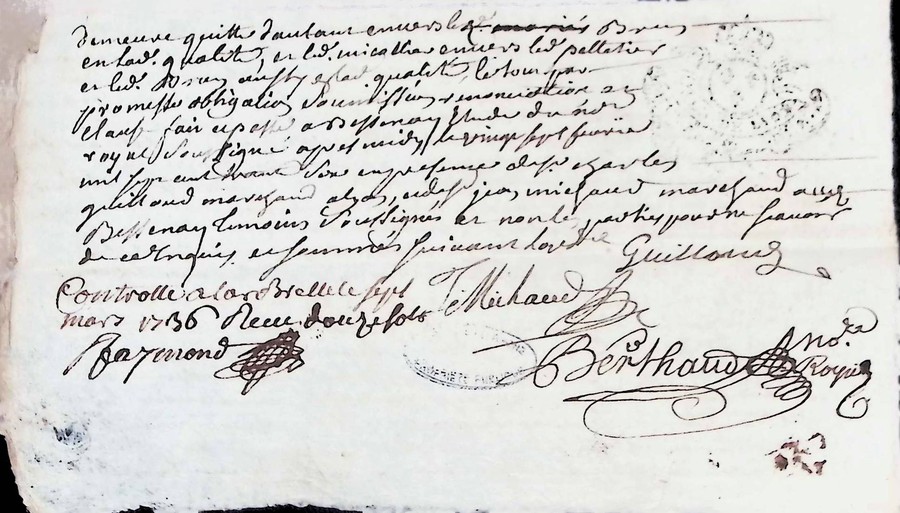 demeure quitte dautant envers led. mariés Brun
en lad. qualité, et led. micalhe envers led. pelletier
et led. Brun aussy esd. qualité, le tour par
promesse obligation soumission renonciation et
clause fait et passé a Bessenay Etude du no.re
royal soussigné apres midy le vingt sept fevrier
mil sept cent trente six en presence de sr. charles
guilloud marchand a lyon, et de sr. jean michaud marchand
Bessenay temoins soussignés et non les parties pour ne scavoir
de ce Enquis et sommés suivant lord.ce Guilloud
Controllé a larbrelle le sept JMichaud
mars 1736 Receu douze sols
Raymond Berthaud No.re
Royal
PROPRIETE PUBLIQUE